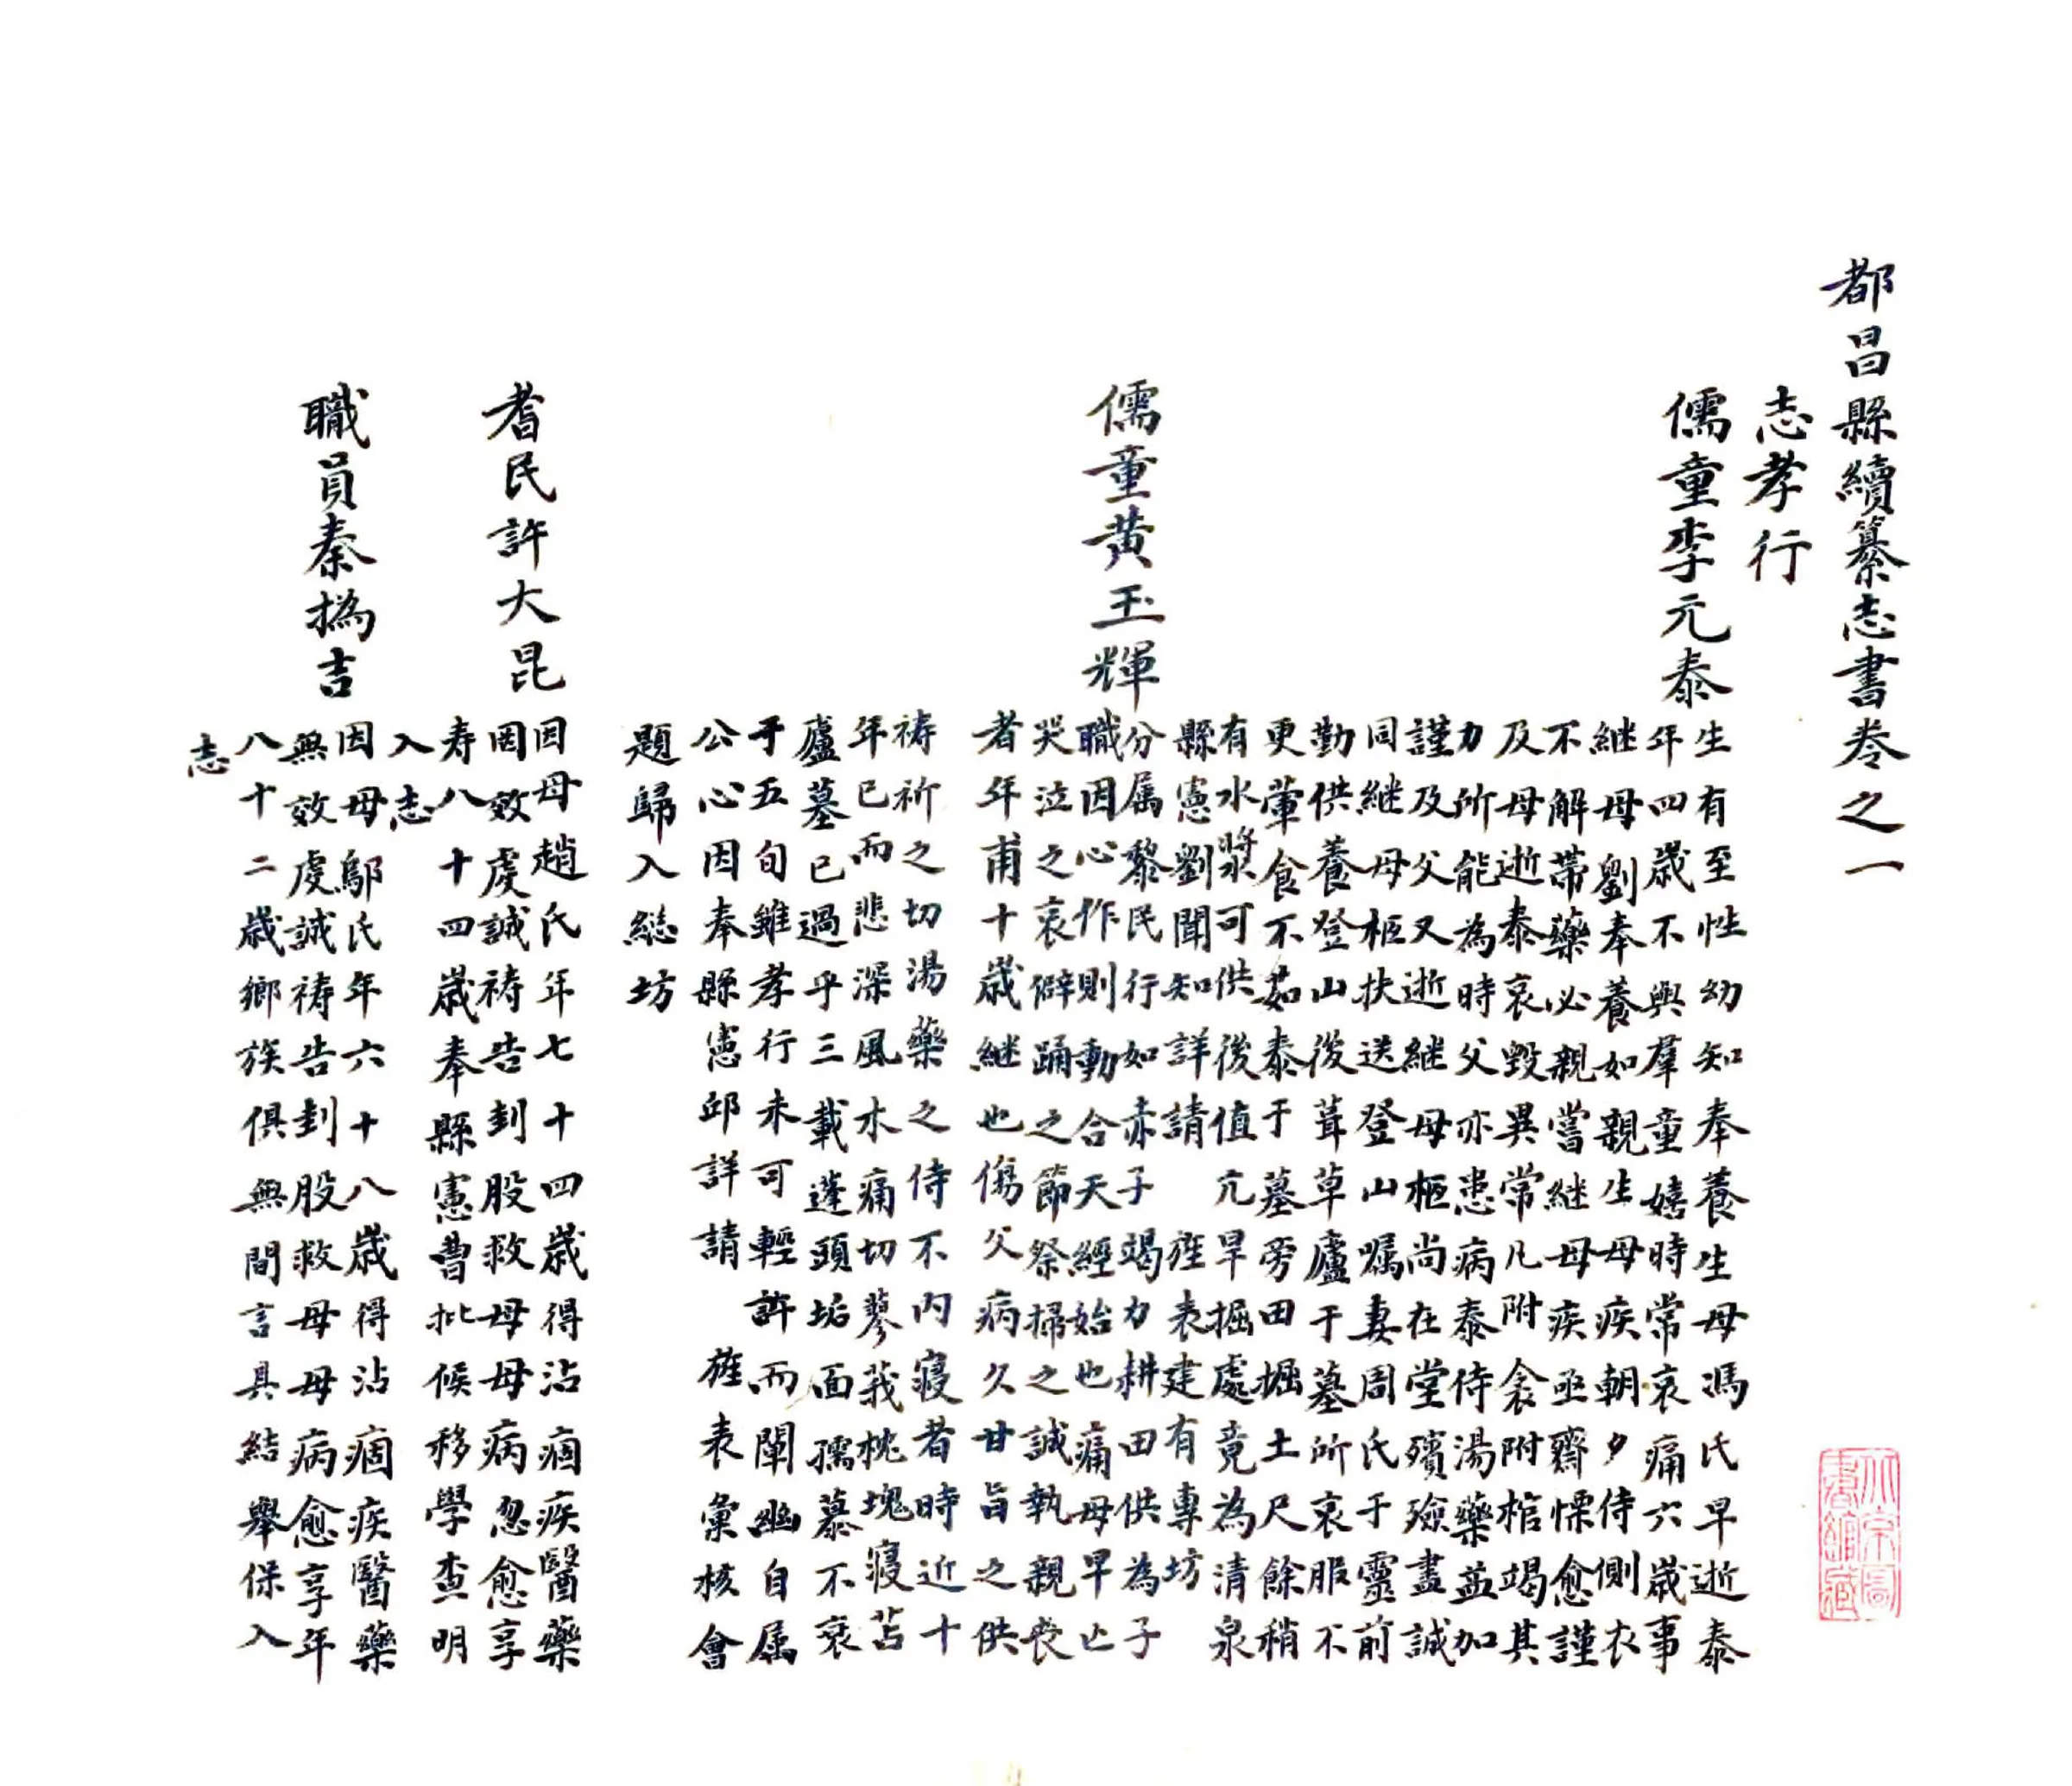 都昌縣續纂志書卷之一
志孝行
儒童李元泰
生有至性幼知奉養生母馮氏早逝泰
年四歲不與羣童嬉時常哀痛六歲事
継母劉奉養如親生母疾朝夕侍側衣
不解帶藥必親嘗継母疾亟齋慄愈謹
及母逝泰哀毀異常凡附衾附棺竭其
力所能為時父亦患病泰侍湯藥益加
謹及父又逝継母柩尚在堂殯殮盡誠
同継母柩扶送登山嘱妻周氏于靈前
勤供養登山後葺草廬于墓所哀服不
更葷食不茹泰于墓旁田掘土尺餘稍
有水漿可供後值亢旱掘處竟為清泉
縣憲劉聞知詳請 旌表建有專坊
儒童黄玉輝
分属黎民行如赤子竭力耕田供為子
職因心作則動合天經始也痛母早亡
哭泣之哀僻踊之節祭掃之誠執親喪
者年甫十歲継也傷父病久甘旨之供
祷祈之切湯藥之侍不内寝者時近十
年已而悲深風水痛切蓼莪枕塊寝苫
廬墓已過乎三載蓬頭垢面孺慕不衰
于五旬雖孝行未可輕許而闡幽自属
公心因奉縣憲邱詳請 旌表彙核會
題歸入緫坊
耆民許大昆
因母趙氏年七十四歲得沾痼疾醫藥
罔效虔誠祷告刲股救母母病忽愈享
寿八十四歲奉縣憲曹批候移學查明
入志
職員秦撝吉
因母鄔氏年六十八歲得沾痼疾醫藥
無效虔誠祷告刲股救母母病愈享年
八十二歲鄉族俱無間言具結舉保入
志